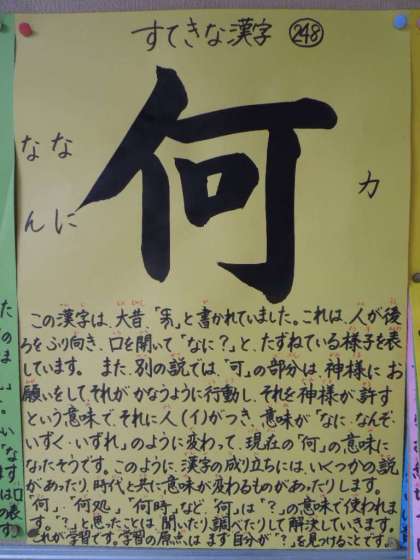 すてきな漢字 248
何
なに
なん
カ
この漢字は、大昔「」と書かれていました。これは、人が後
ろをふり向き、口を開いて「なに?」と、たずねている様子を表
しています。また、別の説では、「可」の部分は、神様にお
願いをして、それがかなうように行動し、それを神様が許す
という意味で、それに人(イ)がつき、意味が「なに、なんぞ、
いずく、いずれ」のように変わって、現在の「何」の意味に
なったそうです。このように、漢字の成り立ちには、いくつかの説
があったり、時代と共に意味が変わるものがあったりします。
「何」、「何処」、「何時」など、「何」は「?」の意味で使われま
す。「?」と思ったことは、聞いたり、調べたりして解決していきます。
これが学習です。学習の原点は、まず自分が「?」を見つけることです。